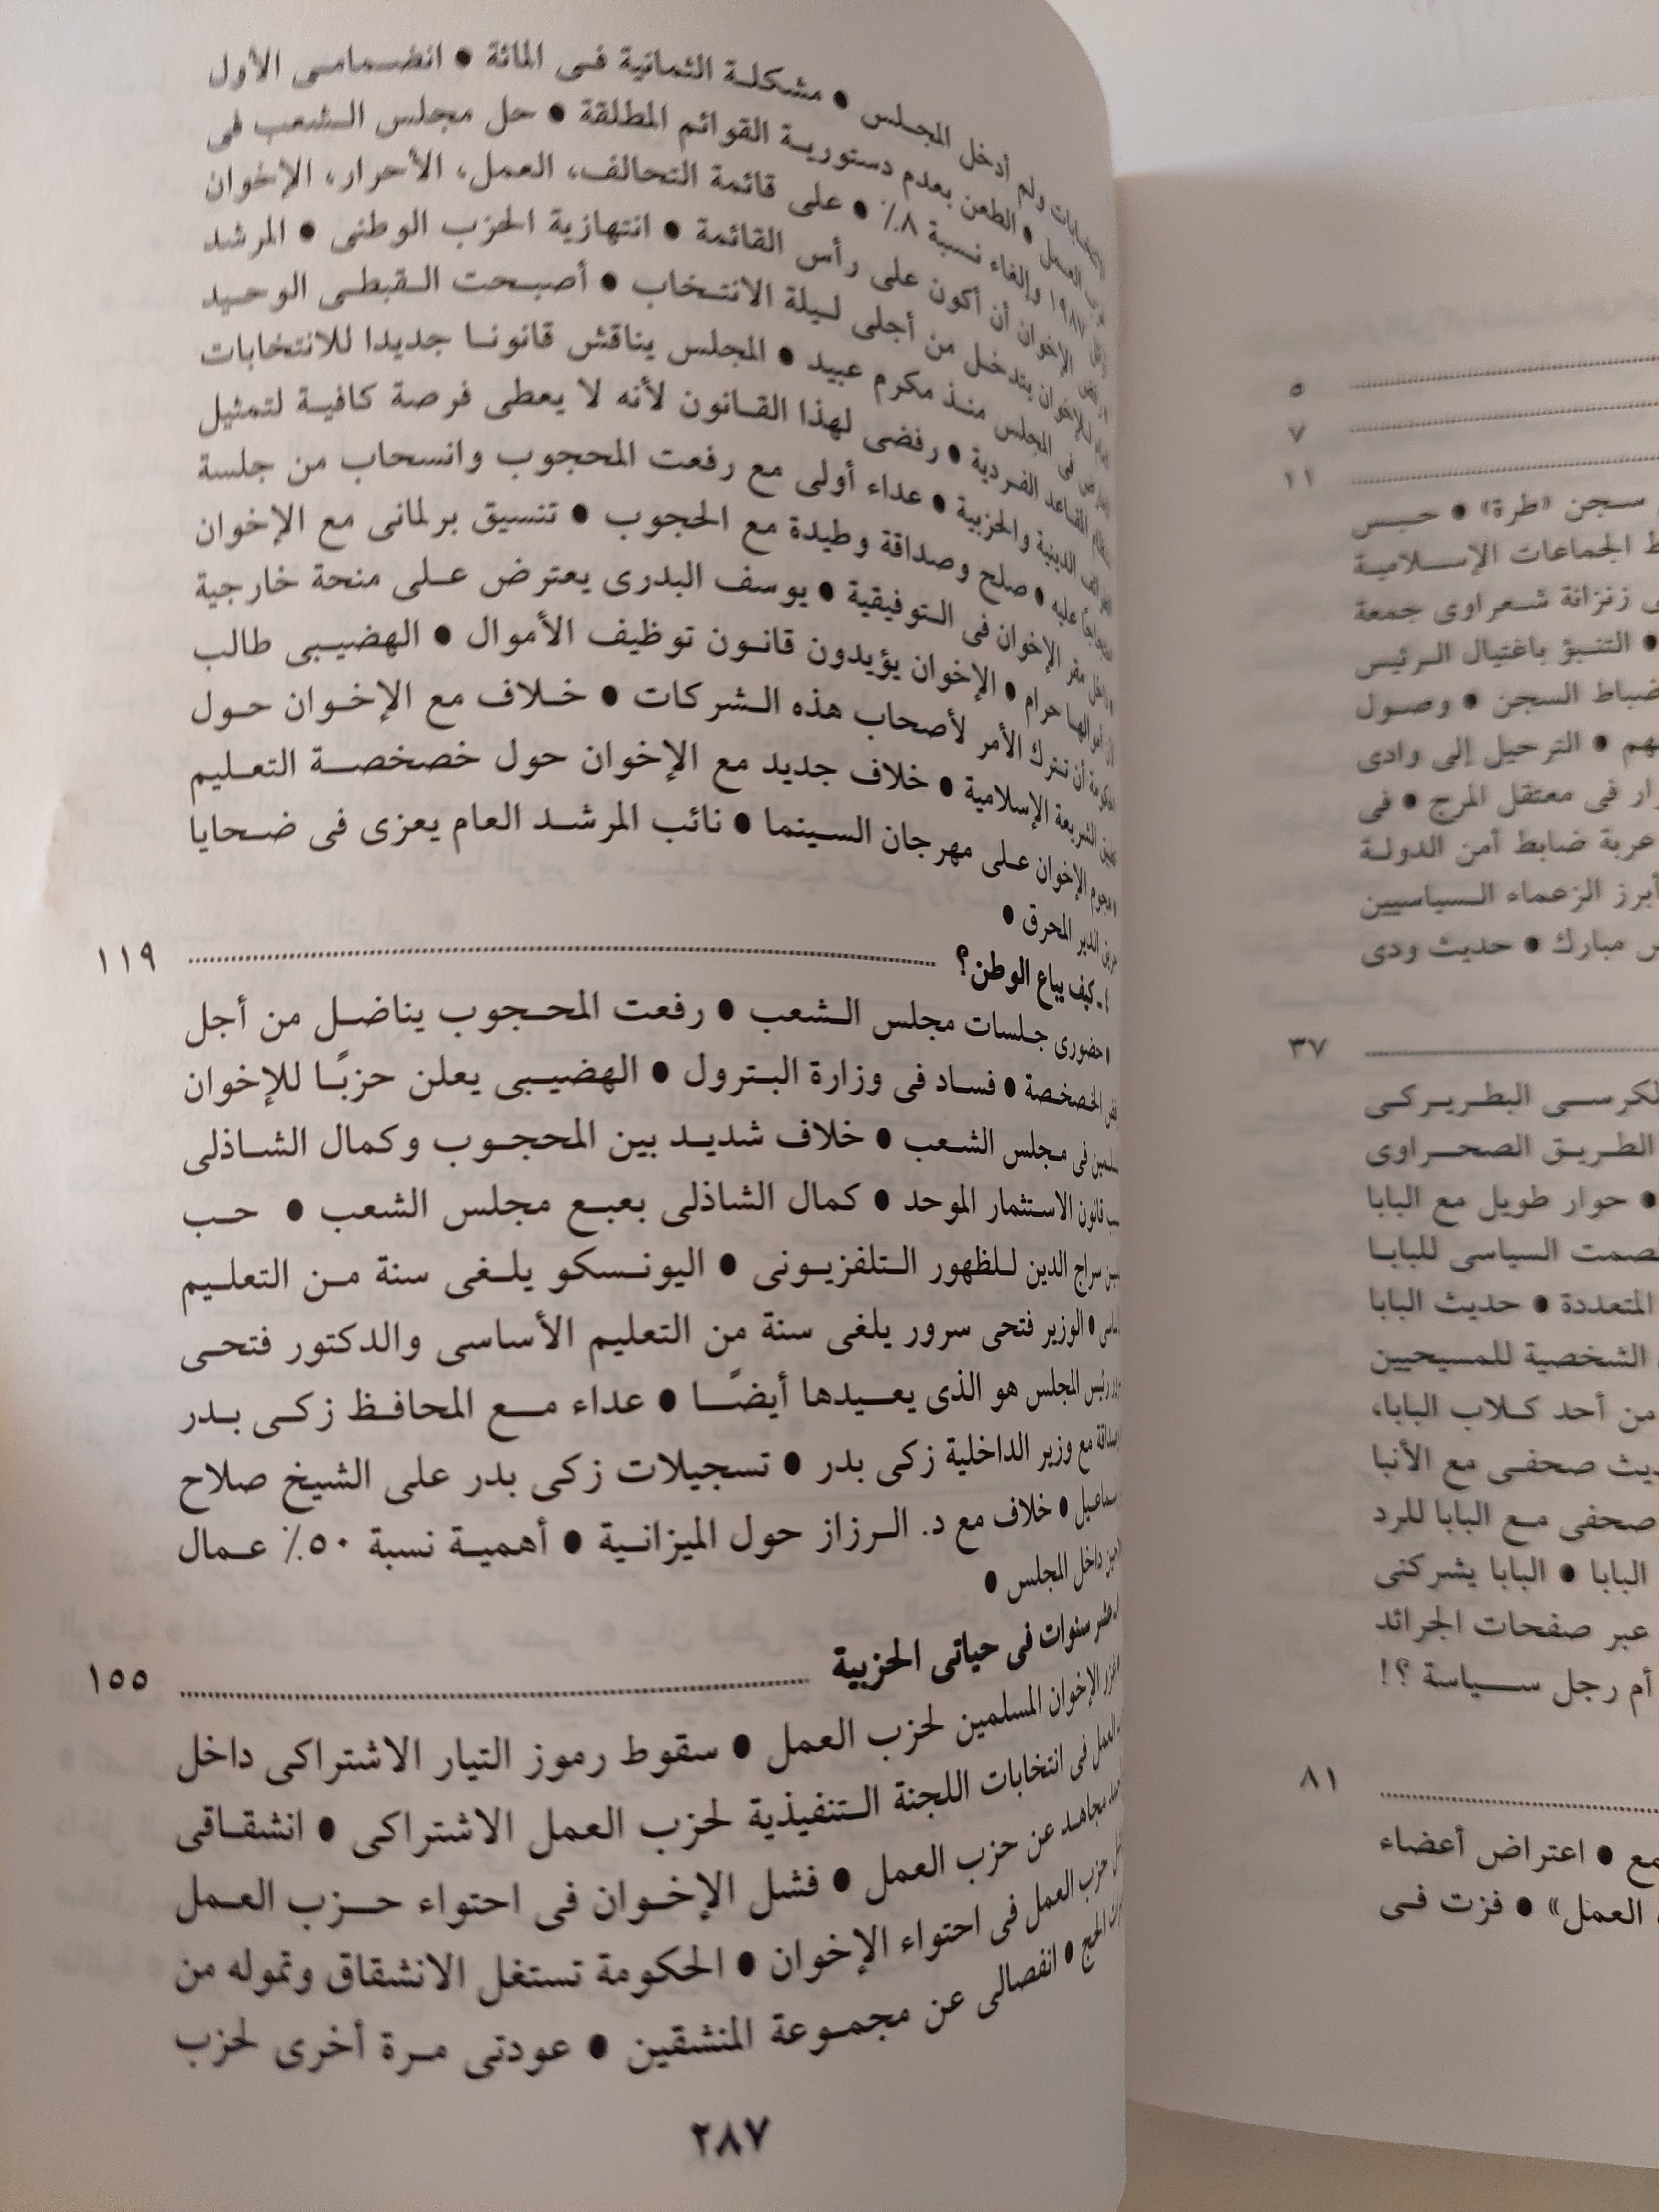 ٥
٧
١١
سجن «طرة» ● حبس
الجماعات الإسلامية
زنزانة شعراوى جمعة
● التنبؤ باغتيال الرئيس
ضباط السجن ● وصول
● الترحيل إلى وادى
فى معتقل المرج ● فى
عربة ضابط أمن الدولة
أبرز الزعماء السياسيين
مبارك ● حديث ودى
٣٧
الكرسى البطريركى
الطريق الصحراوى
● حوار طويل مع البابا
الصمت السياسى للبابا
المتعددة ● حديث البابا
الشخصية للمسيحيين
من أحد كلاب البابا،
صحفى مع الأنبا
صحفى مع البابا للرد
البابا ● البابا يشركنى
عبر صفحات الجرائد
أم رجل سياسة ؟!
٨١
● اعتراض أعضاء
العمل» ● فزت فى
ولم أدخل المجلس ● مشكلة الثمانية فى المائة ● انضمامى الأول
العمل ● الطعن بعدم دستورية القوائم المطلقة ● حل مجلس الشعب فى
١٩٨٧ وإلغاء نسبة ٨٪ ● على قائمة التحالف، العمل، الأحرار، الإخوان
الإخوان أن أكون على رأس القائمة ● انتهازية الحزب الوطنى ● المرشد
للإخوان يتدخل من أجلى ليلة الانتخاب ● أصبحت القبطى الوحيد
فى المجلس منذ مكرم عبيد ● المجلس يناقش قانونا جديدا للانتخابات
المقاعد الفردية ● رفضى لهذا القانون لأنه لا يعطى فرصة كافية لتمثيل
الدينية والحزبية ● عداء أولى مع رفعت المحجوب وانسحاب من جلسة
عليه ● صلح وصداقة وطيدة مع الحجوب ● تنسيق برلمانى مع الإخوان
مقر الإخوان فى التوفيقية ● يوسف البدرى يعترض على منحة خارجية
أموالها حرام ● الإخوان يؤيدون قانون توظيف الأموال ● الهضيبى طالب
أن نترك الأمر لأصحاب هذه الشركات ● خلاف مع الإخوان حول
الشريعة الإسلامية ● خلاف جديد مع الإخوان حول خصخصة التعليم
● هجوم الإخوان على مهرجان السينما ● نائب المرشد العام يعزى فى ضحايا
الدير المحرق ●
٤ - كيف يباع الوطن؟ ١١٩
● حضورى جلسات مجلس الشعب ● رفعت المحجوب يناضل من أجل
الخصخصة ● فساد فى وزارة البترول ● الهضيبى يعلن حزبًا للإخوان
فى مجلس الشعب ● خلاف شديد بين المحجوب وكمال الشاذلى
قانون الاستثمار الموحد ● كمال الشاذلى بعبع مجلس الشعب ● حب
سراج الدين للظهور التلفزيونى ● اليونسكو يلغى سنة من التعليم
● الوزير فتحى سرور يلغى سنة من التعليم الأساسى والدكتور فتحى
رئيس المجلس هو الذى يعيدها أيضًا ● عداء مع المحافظ زكى بدر
مع وزير الداخلية زكى بدر ● تسجيلات زكى بدر على الشيخ صلاح
● خلاف مع د. الرزاز حول الميزانية ● أهمية نسبة ٥٠٪ عمال
داخل المجلس ●
عشر سنوات فى حياتى الحزبية ١٥٥
الإخوان المسلمين لحزب العمل ● سقوط رموز التيار الاشتراكى داخل
العمل فى انتخابات اللجنة التنفيذية لحزب العمل الاشتراكى ● انشقاقى
مجاهد عن حزب العمل ● فشل الإخوان فى احتواء حزب العمل
حزب العمل فى احتواء الإخوان ● الحكومة تستغل الانشقاق وتموله من
الحج ● انفصالى عن مجموعة المنشقين ● عودتى مرة أخرى لحزب
٢٨٧